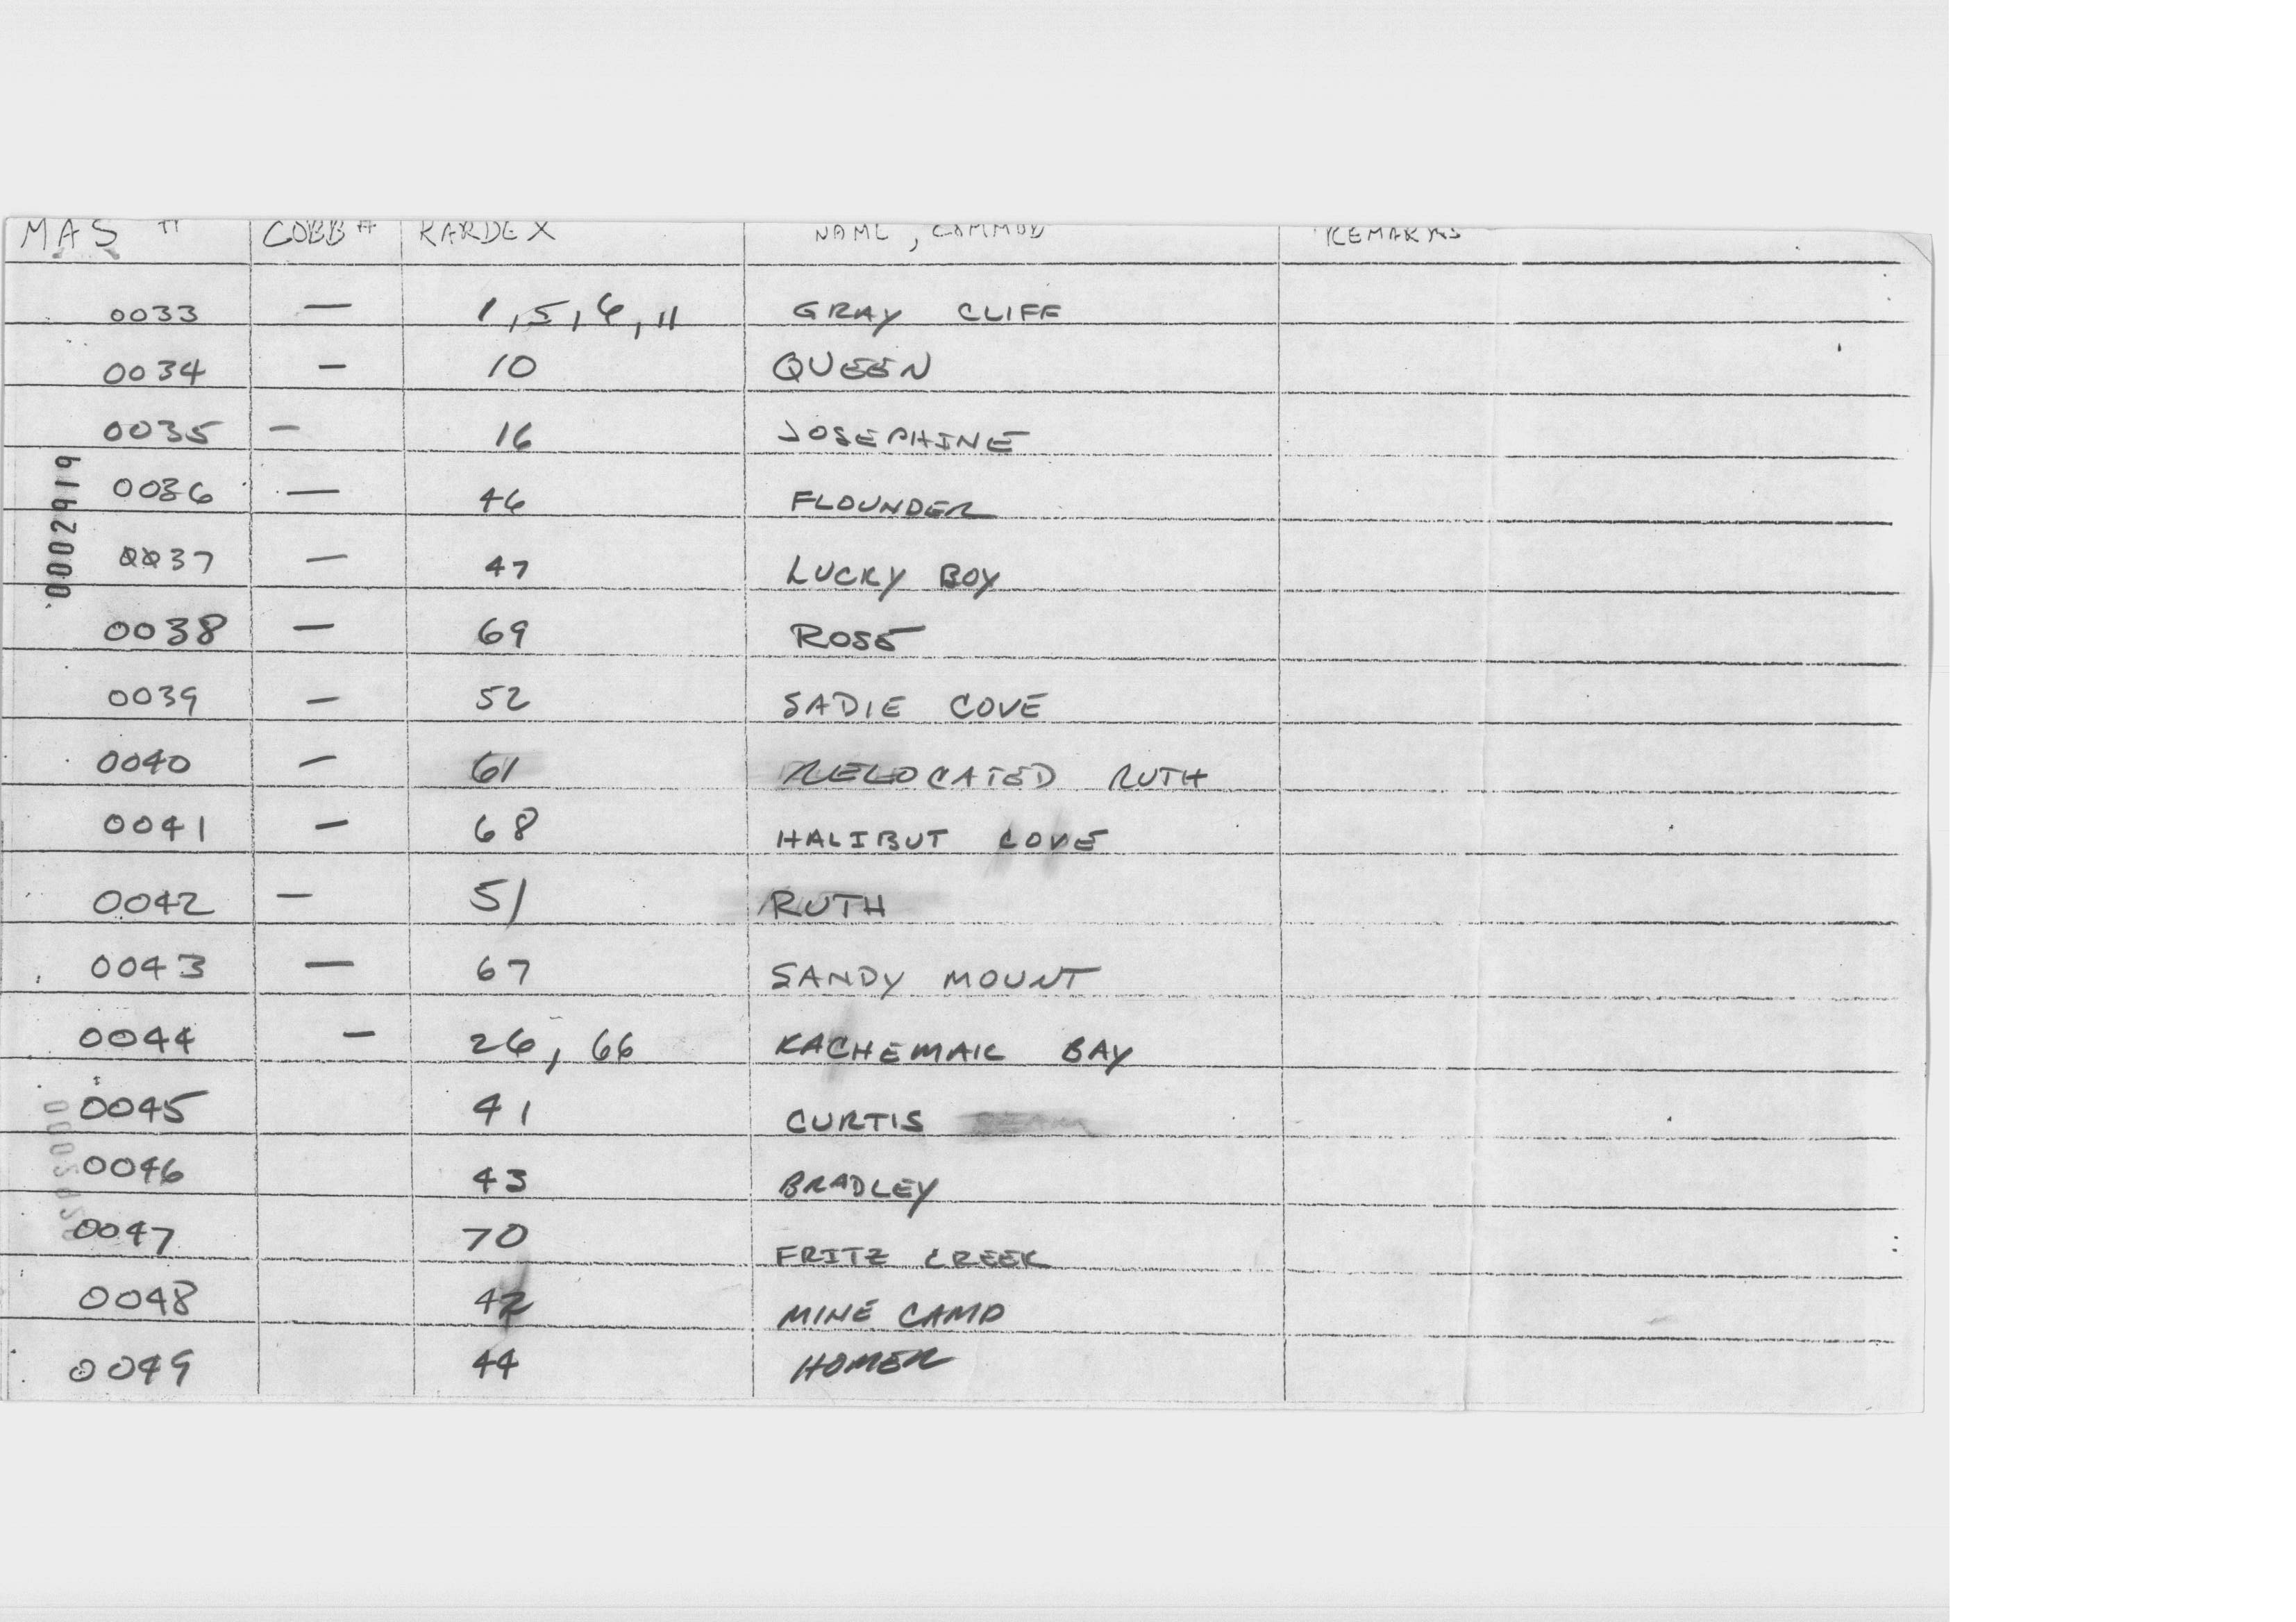 MAS # COBB # KARDEX NAME, COMMOD REMARKS
0033 — 1, 5, 6, 11 GRAY CLIFF
0034 — 10 QUEEN
0035 — 16 JOSEPHINE
0036 — 46 FLOUNDER
0037 — 47 LUCKY BOY
0038 — 69 ROSS
0039 — 52 SADIE COVE
0040 — 61 RELOCATED RUTH
0041 — 68 HALIBUT COVE
0042 — 51 RUTH
0043 — 67 SANDY MOUNT
0044 — 26, 66 KACHEMAK BAY
0045 41 CURTIS
0046 43 BRADLEY
0047 70 FRITZ CREEK
0048 42 MINE CAMP
0049 44 HOMER
0002919